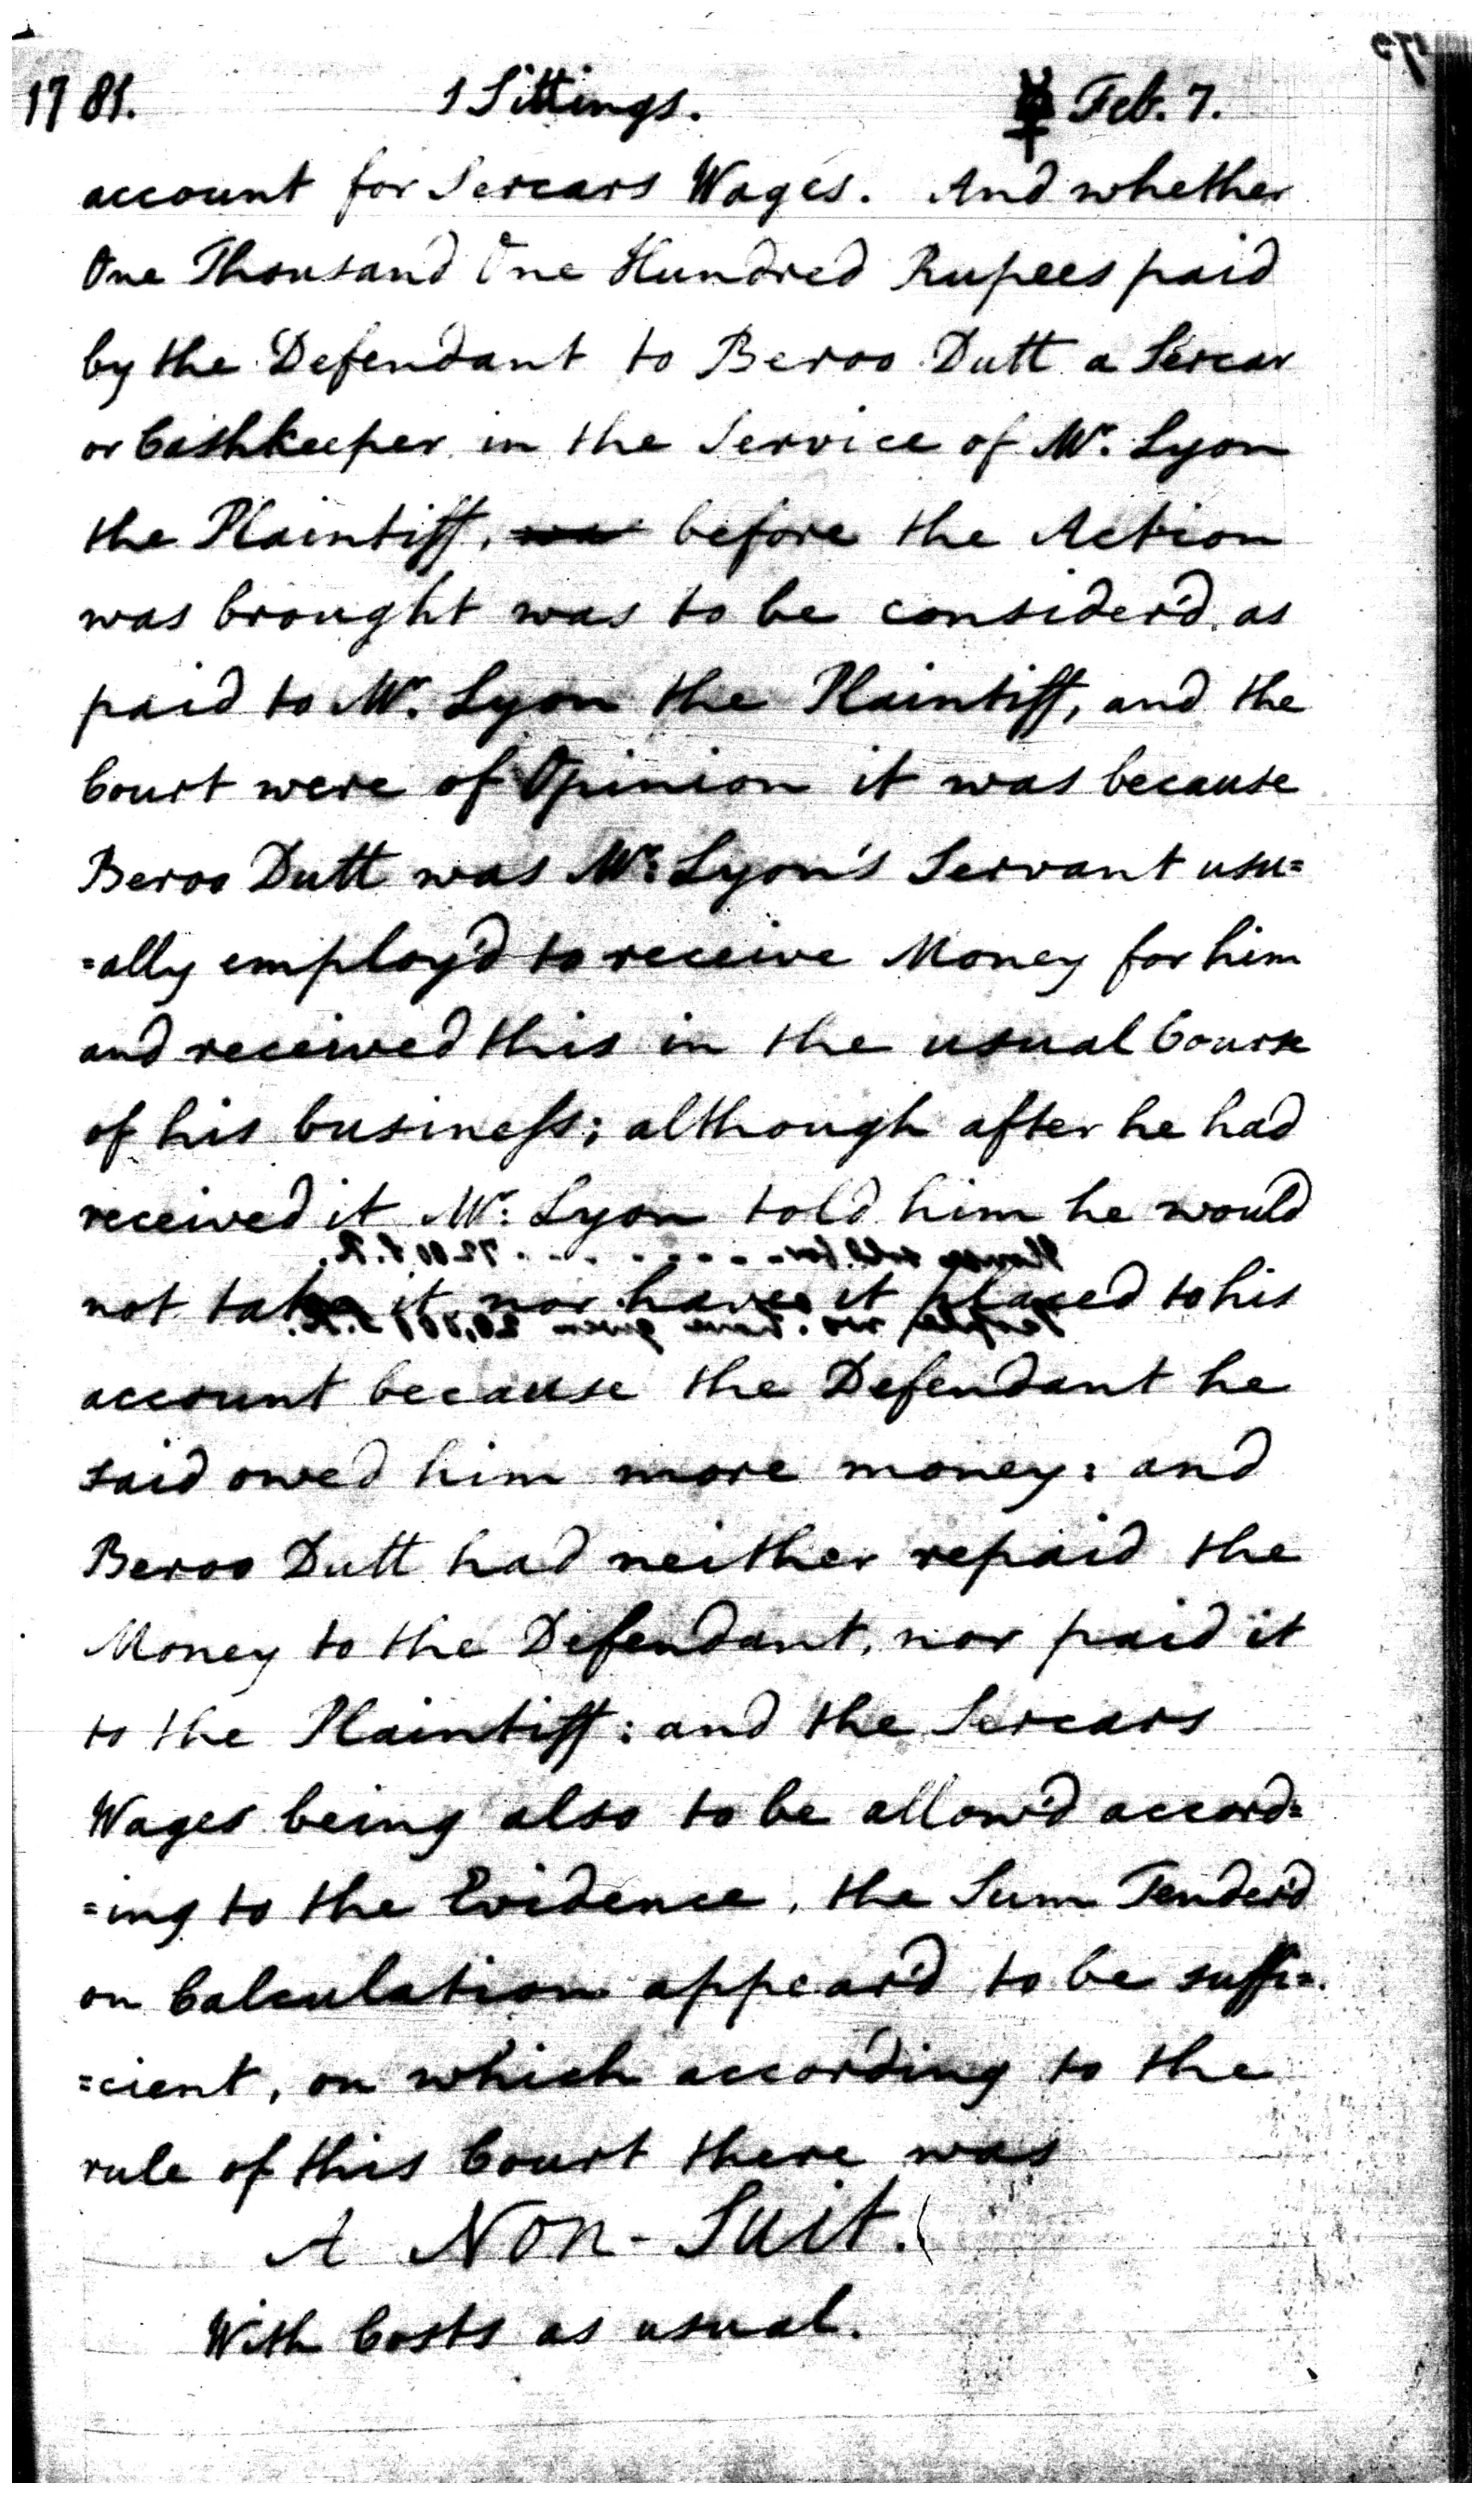 1781. 1 Sittings. ☿ Feb. 7.
account for Sercars Wages. And whether
One Thousand One Hundred Rupees paid
by the Defendant to Beroo Dutt a Sercar
or Cashkeeper in the Service of Mr. Lyon
the Plaintiff, was before the Action
was brought was to be consider'd as
paid to Mr. Lyon the Plaintiff, and the
Court were of Opinion it was because
Beroo Dutt was Mr. Lyon's Servant usu=
=ally employ'd to receive Money for him
and received this in the usual Course
of his business; although after he had
received it Mr. Lyon told him he would
not take it, nor have it placed to his
account because the Defendant he
said owed him more money: and
Beroo Dutt had neither repaid the
Money to the Defendant, nor paid it
to the Plaintiff: and the Sercars
Wages being also to be allow'd accord=
=ing to the Evidence, the Sum Tender'd
on Calculation appear'd to be suffi=
=cient, on which according to the
rule of this Court there was
A Non-Suit.
With Costs as usual.